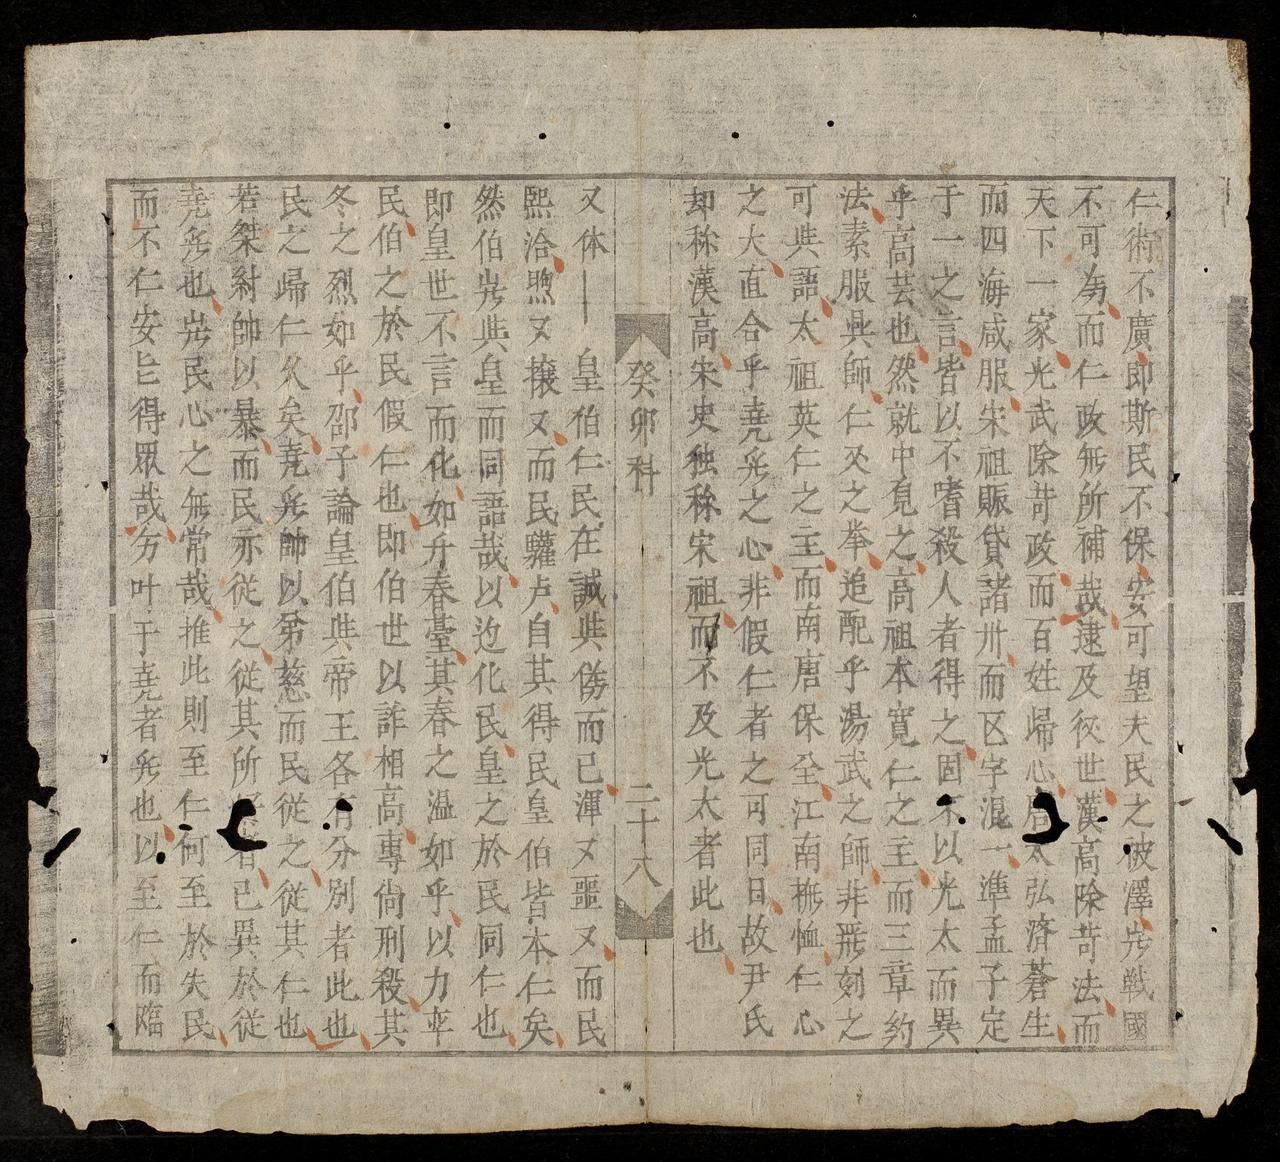 仁術不廣即斯民不保安可望夫民之被澤𡵨戦國
不可為而仁政無所補哉逮及後世漢高除苛法而
天下一家光武除苛政而百姓歸心唐太弘濟蒼生
而四海咸服宋祖賑貸諸州而区字混一準孟子定
于一之言皆以不嗜殺人者得之固不以光太而異
乎高芸也然就中見之高祖本寛仁之主而三章約
法素服興師仁义之举追配乎湯武之師非𠛬刻之
可㒷語太祖英仁之主而南唐保全江南撫恤仁心
之大直合乎堯𠒋之心非假仁者之可同日故尹氏
却称漢高宋史独称宋祖而不及光太者此也
癸卯科
二十八
又体——皇伯仁民在誠㒷偽而已渾又噩又而民
熙洽煦又攘又而民驩卢自其得民皇伯皆本仁矣
然伯𡵨㒷皇而同語哉以迯化民皇之於民同仁也
即皇世不言而化如升春臺其春之温如乎以力𠦑
民伯之於民假仁也即伯世以詐相高專尙刑殺其
冬之烈如乎邵子論皇伯㒷帝王各有分別者此也
民之歸仁久矣堯𠒋帥以第慈而民從之從其仁也
若桀紂帥以暴而民亦從之從其所好者已異於從
堯𠒋也𡵨民心之無常哉推此則至仁何至於失民
而不仁安㠯得眾哉方叶于堯者𠒋也以至仁而臨